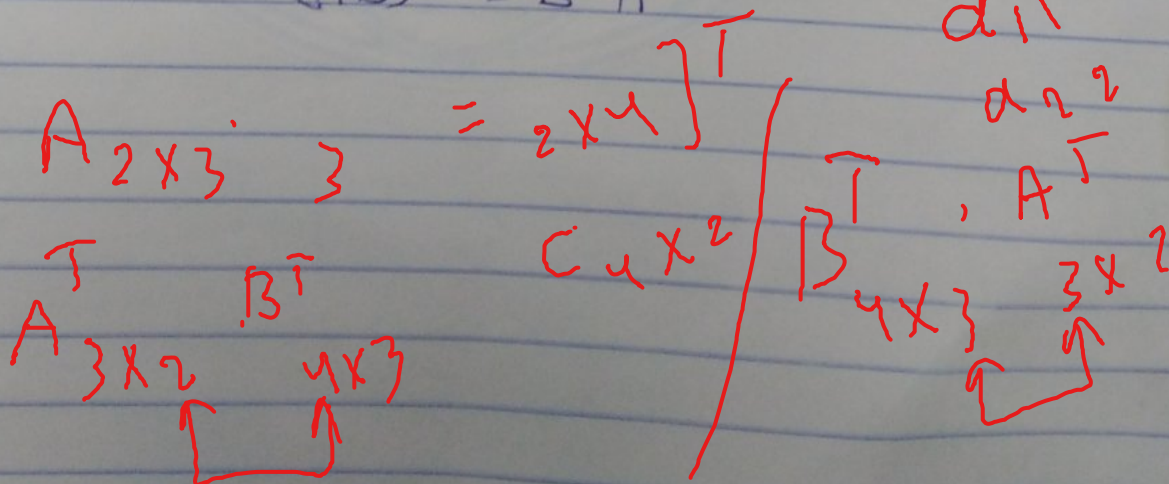 A 2×3 · 3 = 2×4]ᵀ
C 4×2
Aᵀ 3×2 · Bᵀ 4×3
d1
d22
Bᵀ 4×3 · Aᵀ 3×2